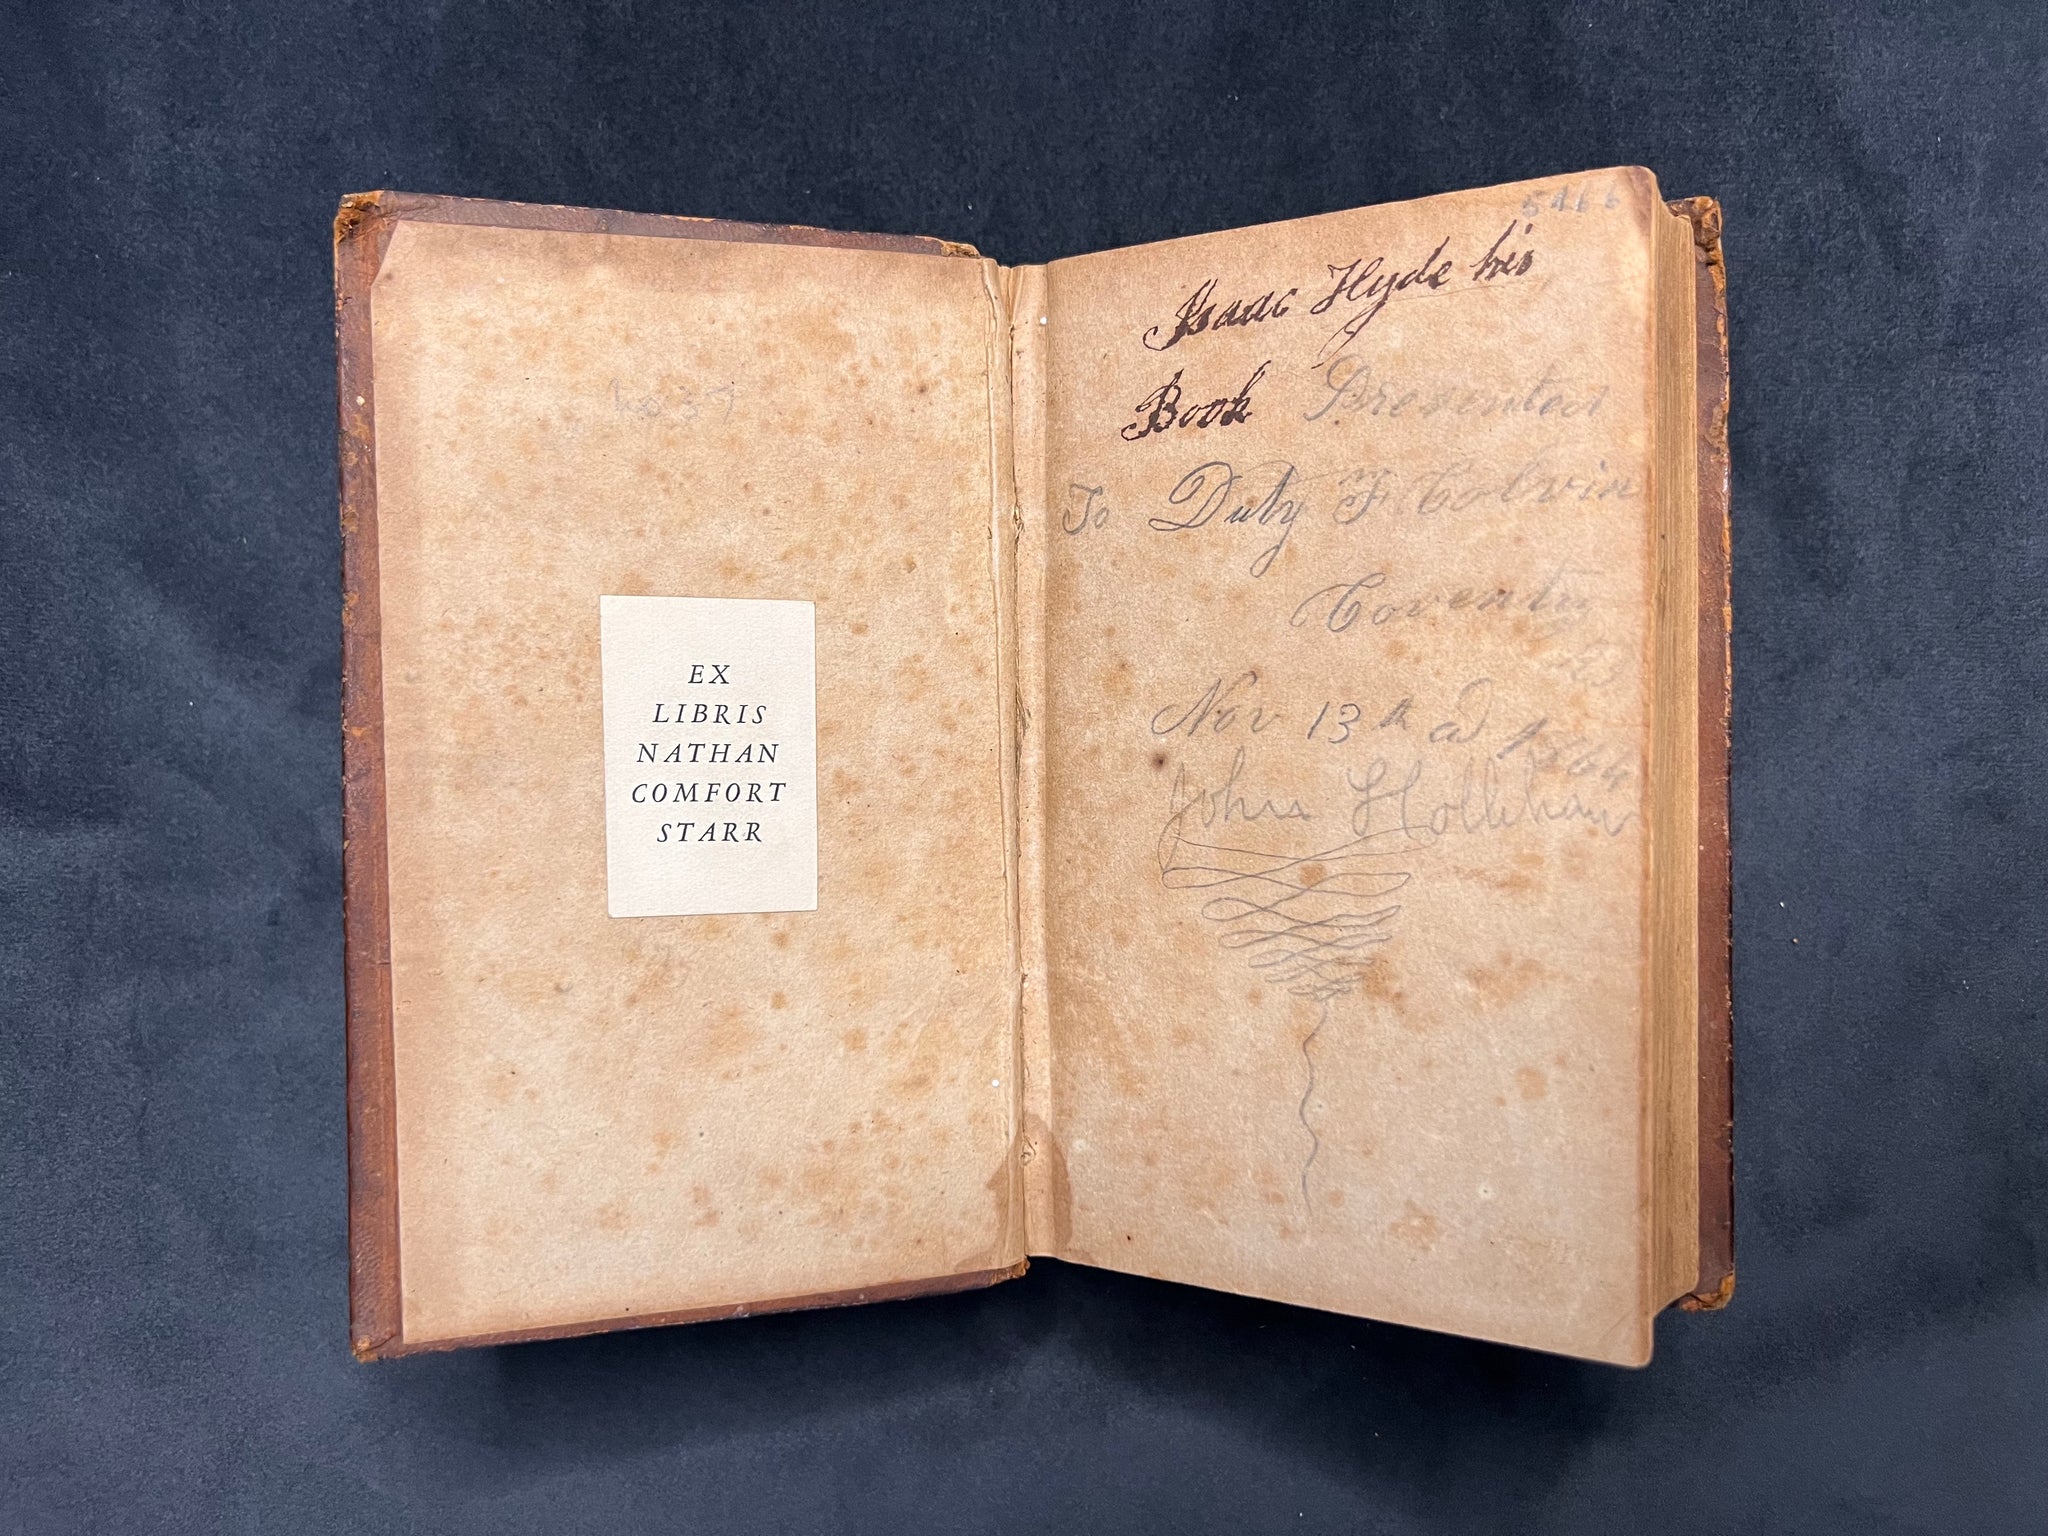 EX
LIBRIS
NATHAN
COMFORT
STARR
5466
Isaac Hyde his
Book Presented
To Duty F. Colvin
Coventry
Nov 13th ad 1864
John Hollihan